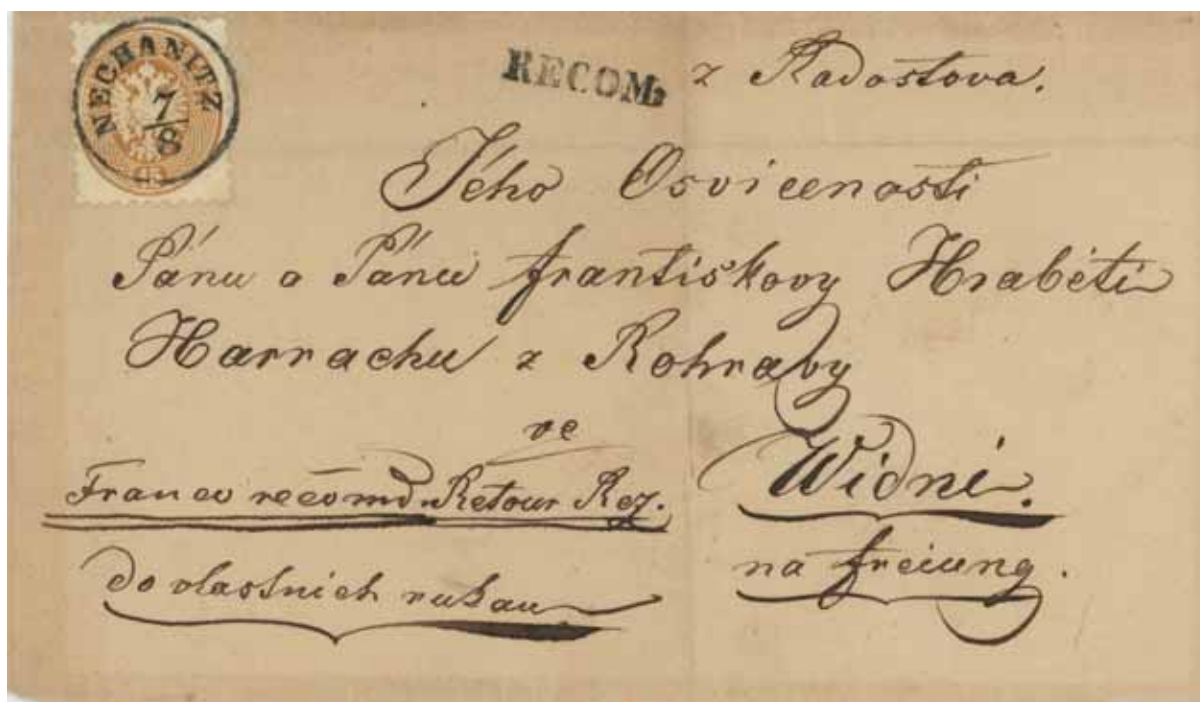 NECHANITZ
7/8
RECOM. z Radostova.
Jeho Osvícenosti
Pánu a Pánu františkovy Hraběti
Harrachu z Rohravy
ve Widni.
Franco recomd. Retour Rez.
na freiung.
do vlastních rukau